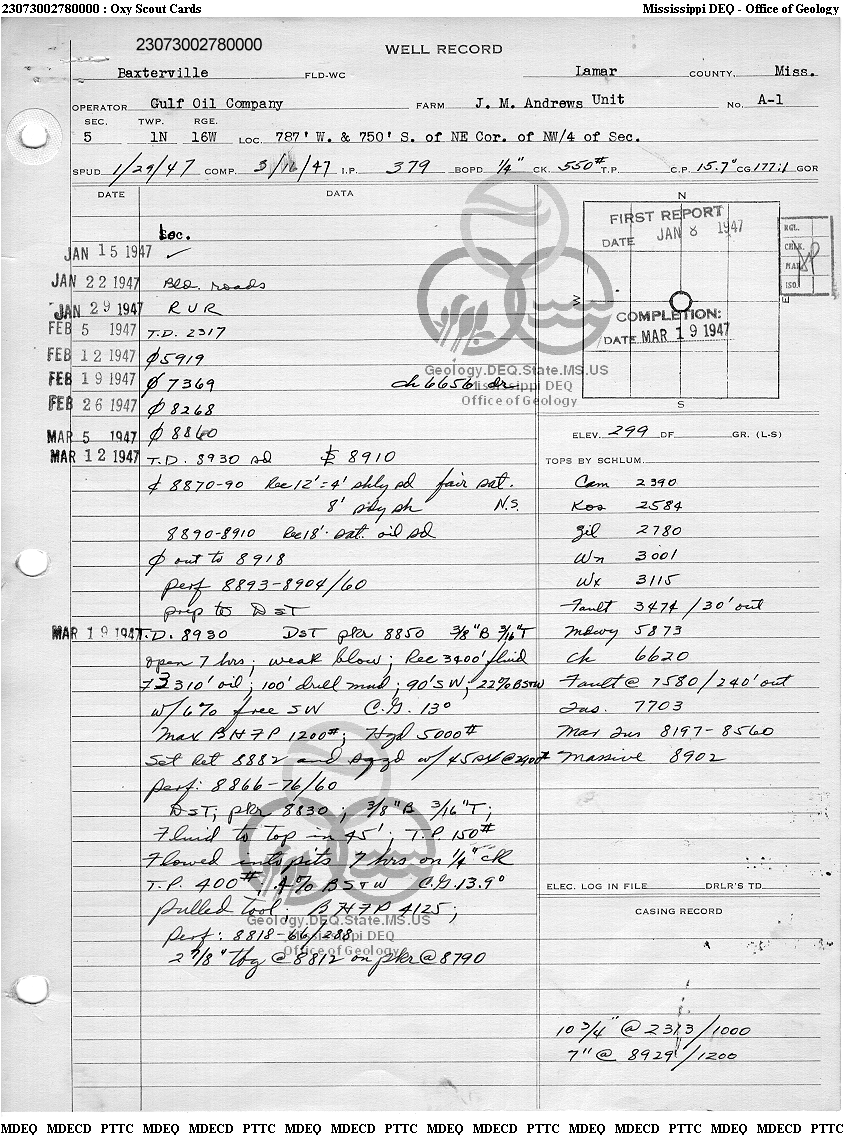 23073002780000 : Oxy Scout Cards Mississippi DEQ - Office of Geology
23073002780000
WELL RECORD
Baxterville FLD-WC Lamar COUNTY, Miss.
OPERATOR Gulf Oil Company FARM J. M. Andrews Unit NO. A-1
SEC. TWP. RGE.
5 1N 16W LOC. 787' W. & 750' S. of NE Cor. of NW/4 of Sec.
SPUD 1/29/47 COMP. 3/16/47 I.P. 379 BOPD 1/4" CK. 550# T.P. C.P. 15.7° CG 177:1 GOR
DATE DATA
Loc.
JAN 15 1947 ✓
JAN 22 1947 Bld. roads
JAN 29 1947 RUR
FEB 5 1947 T.D. 2317
FEB 12 1947 ⌀ 5919
FEB 19 1947 ⌀ 7369 ch 6656 dr
FEB 26 1947 ⌀ 8268
MAR 5 1947 ⌀ 8860
MAR 12 1947 T.D. 8930 sd 8910
¢ 8870-90 Rec 12' = 4' shly sd fair sat.
8' sdy sh N.S.
8890-8910 Rec 18' sat. oil sd
⌀ out to 8918
perf 8893-8904/60
prep to DST
MAR 19 1947 T.D. 8930 DST pkr 8850 3/8"B 3/16"T
open 7 hrs; weak blow; Rec 3400' fluid
3310' oil; 100' drill mud; 90' SW; 22% BS+W
w/6% free SW C.G. 13°
Max BHFP 1200#; Hyd 5000#
Set Ret 8882 and sqzd w/45 sx @ 2400#
perf: 8866-76/60
DST; pkr 8830; 3/8"B 3/16"T;
Fluid to top in 45'; T.P. 150#
Flowed into pits 7 hrs on 1/4" ck
T.P. 400#, .4% BS+W C.G. 13.9°
pulled tool; BHFP 4125;
perf: 8818-66/288
2 7/8" tbg @ 8812 on pkr @ 8790
N
FIRST REPORT
DATE JAN 8 1947
W
E
COMPLETION:
DATE MAR 19 1947
S
RGL.
CHK.
MAP
ISO.
Geology.DEQ.State.MS.US
Mississippi DEQ
Office of Geology
ELEV. 299 DF GR. (L-S)
TOPS BY SCHLUM.
Cam 2390
Kos 2584
Zil 2780
Wn 3001
Wx 3115
Fault 3474/30' out
Mdwy 5873
Ch 6620
Fault @ 7580/240' out
Tus. 7703
Mar Tus 8197-8560
Massive 8902
ELEC. LOG IN FILE DRLR'S TD
CASING RECORD
10 3/4" @ 2313/1000
7" @ 8929'/1200
Geology.DEQ.State.MS.US
Mississippi DEQ
Office of Geology
MDEQ MDECD PTTC MDEQ MDECD PTTC MDEQ MDECD PTTC MDEQ MDECD PTTC MDEQ MDECD PTTC MDEQ MDECD PTTC